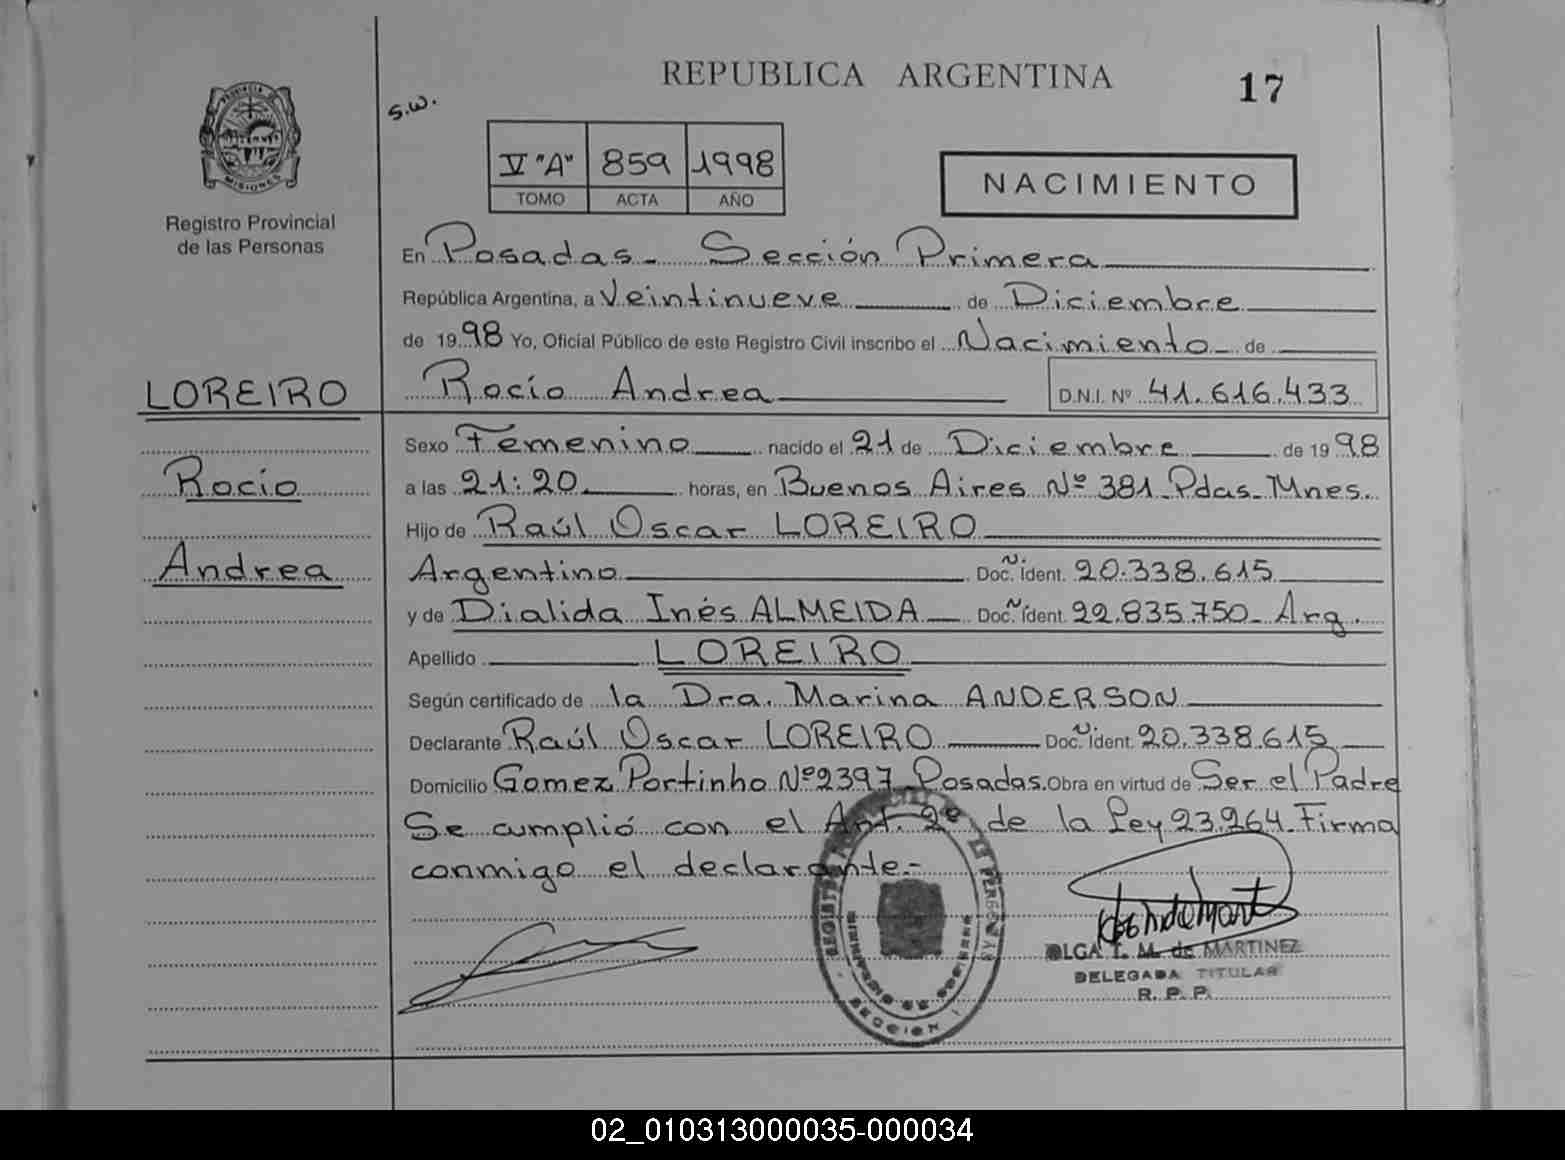 REPUBLICA ARGENTINA
17
s.w.
V "A" 859 1998
TOMO ACTA AÑO
NACIMIENTO
PROVINCIA DE
MISIONES
Registro Provincial
de las Personas
En Posadas - Sección Primera
República Argentina, a Veintinueve de Diciembre
de 1998 Yo, Oficial Público de este Registro Civil inscribo el Nacimiento de
LOREIRO
Rocío Andrea D.N.I. Nº 41.616.433
Rocío
Andrea
Sexo Femenino nacido el 21 de Diciembre de 1998
a las 21:20 horas, en Buenos Aires Nº 381 - Pdas - Mnes.
Hijo de Raúl Oscar LOREIRO
Argentino Doc. Ident. 20.338.615
y de Dialida Inés ALMEIDA Doc. Ident. 22.835.750 - Arg.
Apellido LOREIRO
Según certificado de la Dra. Marina ANDERSON
Declarante Raúl Oscar LOREIRO Doc. Ident. 20.338.615
Domicilio Gomez Portinho Nº 2397 - Posadas. Obra en virtud de Ser el Padre
Se cumplió con el Art. 2º de la Ley 23.264 - Firma
conmigo el declarante.-
OLGA I. M. de MARTINEZ
DELEGADA TITULAR
R. P. P.
SECCION 1
02_010313000035-000034